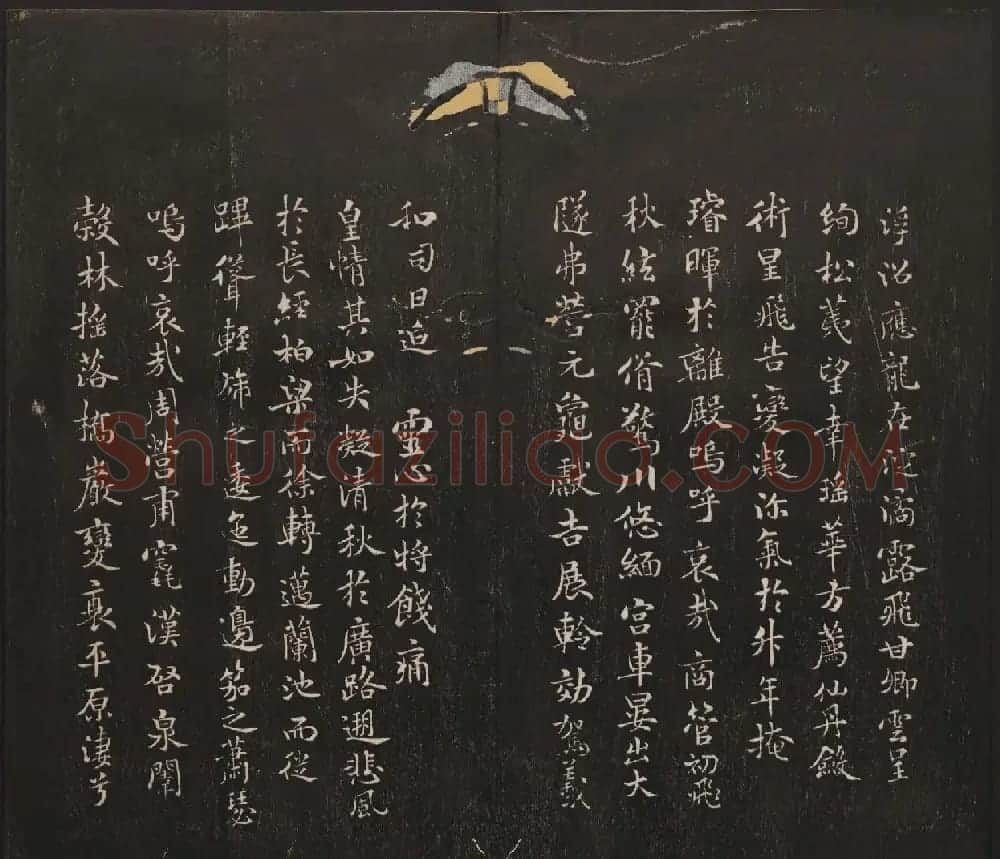 浮沼應龍在滴露飛甘卿雲呈
絢松茂望幸瑤華方薦仙丹輟
術星飛告變凝沴氣於升年掩
璿暉於離殿嗚呼哀哉商管初飛
秋紘罷胥驚川悠緬宮車晏出大
隧弗營元龜獻吉展軨効駕羲
和司日追靈心於將餞痛
皇情其如失凝清秋於廣路遡悲風
於長經柏梁而徐轉邁蘭池而從
蹕聳輕旆之逶迤動邊笳之蕭瑟
嗚呼哀哉周營甫竁漢啓泉闈
穀林搖落橋巖變衰平原淒兮
Shufaziliao.COM